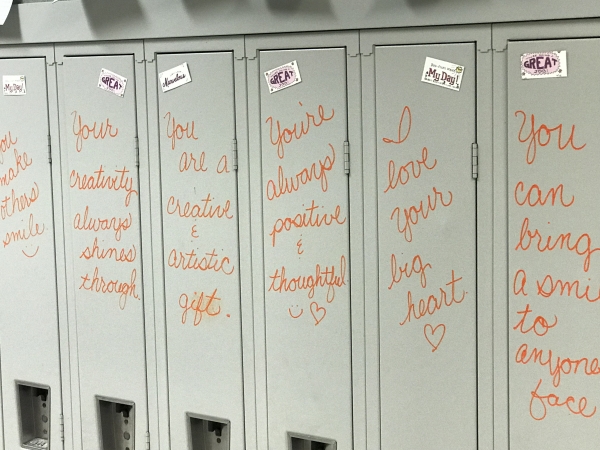 My Day!
you
make
others
smile
GREAT
Your
creativity
always
shines
through.
Marvelous
You
are a
creative
&
artistic
gift.
GREAT
You're
always
positive
&
thoughtful
My Day!
I
love
your
big
heart
GREAT
You
can
bring
a smi
to
anyone
face